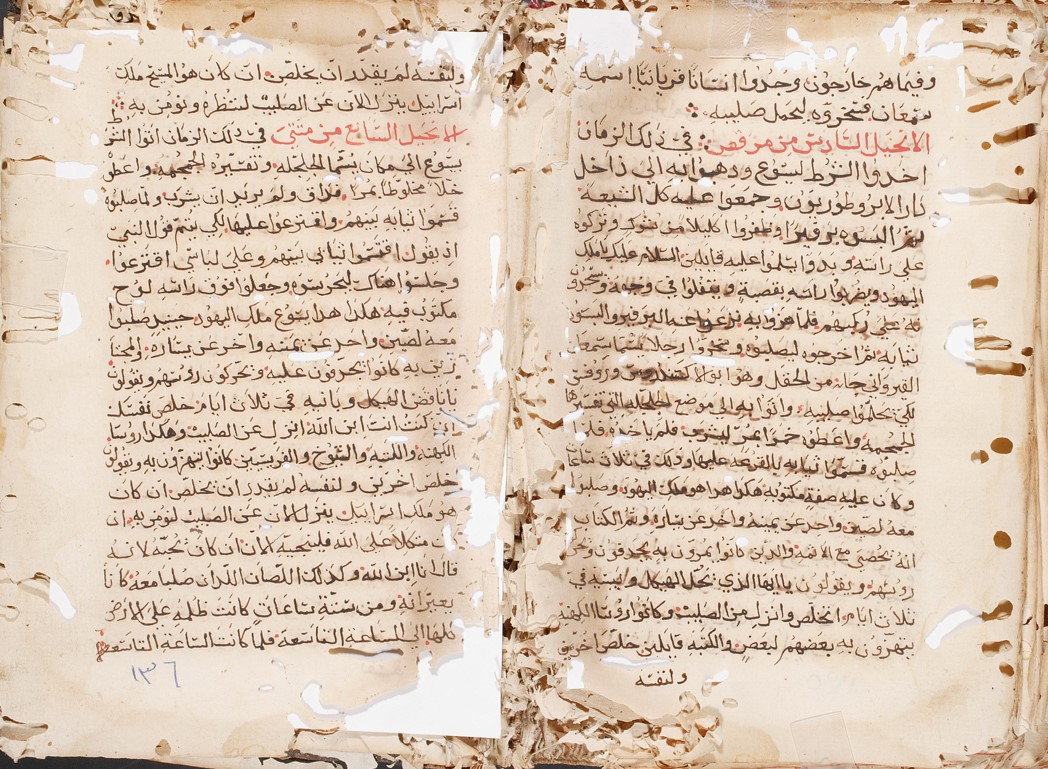 وفيما هم خارجون وجدوا انسانًا قريانيًا اسمه
سمعان فسخروه ليحمل صليبه
الانجيل السادس من مرقص في ذلك الزمان
اخدوا الشرط ليسوع ودهبوا به الى داخل
دار الابروطوريون وجمعوا عليه كل الشيعة
وظفروا اكليلا من شوك وتركوه
على راسه وبدوا يسلموا عليه قايلين السلام عليك يا ملك
اليهود ويضربوا راسه بقصبة ويتفلوا في وجهه وسجدون
له على ركبهم فلما هزوا به نزعوا عنه البرفير والبسوه
ثيابه ثم اخرجوه ليصلبوه وسخروا رجلا
من الحقل وهو ابو الاكسندروس وروفس
لكي يحمل صليبه واتوا به الى موضع الجلجلة التي تفسيرها
الجمجمه واعطوه خمرا بمرًا ليشرب فلم ياخده فلما
صلبوه قسموا ثيابه بالقرعه عليها وذلك في ثلاث ساعات
وكان عليه صفة مكتوبه هكدا هدا هو ملك اليهود وصلبوا
معه لصين واحد عن يمينه واخر عن يساره وتم الكتاب
انه يحصى مع الاثمة والدين كانوا يمرون به يجدفون
روسهم ويقولون يا ايها الذي يحل الهيكل ويبنيه في
ثلاث ايام اخلص وانزل من الصليب وكانوا روسا الكهنة
يتهزون به بعضهم لبعض والكتبه قايلين خلص اخرين
ولنفسه
ولنفسه لم يقدر ان يخلص ان كان هو المسيح ملك
اسراييل ينزل الان عن الصليب لننظره ونؤمن به
الانجيل السابع من متى في دلك الزمان اتوا الشرط
يسوع الى مكان يسمى الجلجله وتفسيره الجمجمه واعطوه
خلا مخلوطا بمرا فداق ولم يريد ان يشرب ولما صلبوه
قسموا ثيابه بينهم واقترعوا عليها لكي يتم قول النبي
اذ يقول اقتسموا ثيابي بينهم وعلى لباسي اقترعوا
وجلسوا هناك ليحرسوه وجعلوا فوق راسه لوح
مكتوب فيه هكدا هدا يسوع ملك اليهود حينيد صلبوا
معه لصين واحد عن يمينه واخر عن يساره والمجتا
زين به كانوا يجدفون عليه ويحركون روسهم ويقولون
يا ناقض الهيكل وبانيه في ثلاث ايام خلص نفسك
ان كنت انت ابن الله انزل عن الصليب وهكدا روسا
الكهنة والكتبه والشيوخ والفريسين كانوا يتهزؤن به ويقولون
خلص اخرين ولنفسه لم يقدر ان يخلص ان كان
هو ملك اسراييل ينزل الان عن الصليب لنؤمن به ان
كان متكلا على الله فلينجيه الان ان كان يحبه لانه
قال انا ابن الله وكدلك اللصان اللدان صلبا معه كانا
يعيرانه ومن ستة ساعات كانت ظلمه على الارض
كلها الى الساعة التاسعه فلما كانت الساعة التاسعه
١٣٦